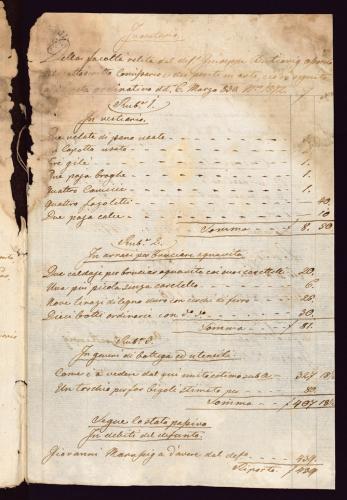 Inventario
Della facoltà relita dal def.to Giuseppe
6 Marzo 830 N.
Rub.ca 1.
In vestiario.
Due velete di pano usate 1.
Un Capotto usato
Tre gilè 1.
Due paja braghe 1.
Quattro Camicie 1.
Quattro fazoletti 40
Due paja calze 10
Somma f 8. 50
Rub.ca 2.
In arnesi per bruciare aquavita
Due caldaje per bruciar aquavita coi suoi capelletti 20.
Una più picola senza capelletto 6.
Nove tinazzi di legno duro con cerchi di ferro 25.
Dieci botti ordinarie con d.i d.o 30.
Somma f 81.
Rub.ca 3.
In generi di bottega ed utensili
Come è a vedere dal qui unito estimo sub A. 367 18
Un torchio per far bigoli stimato per
Somma f 407 18
Segue lo stato passivo
In debiti del defunto.
Giovanni d'avere dal def.o 439.
Riporto f 439